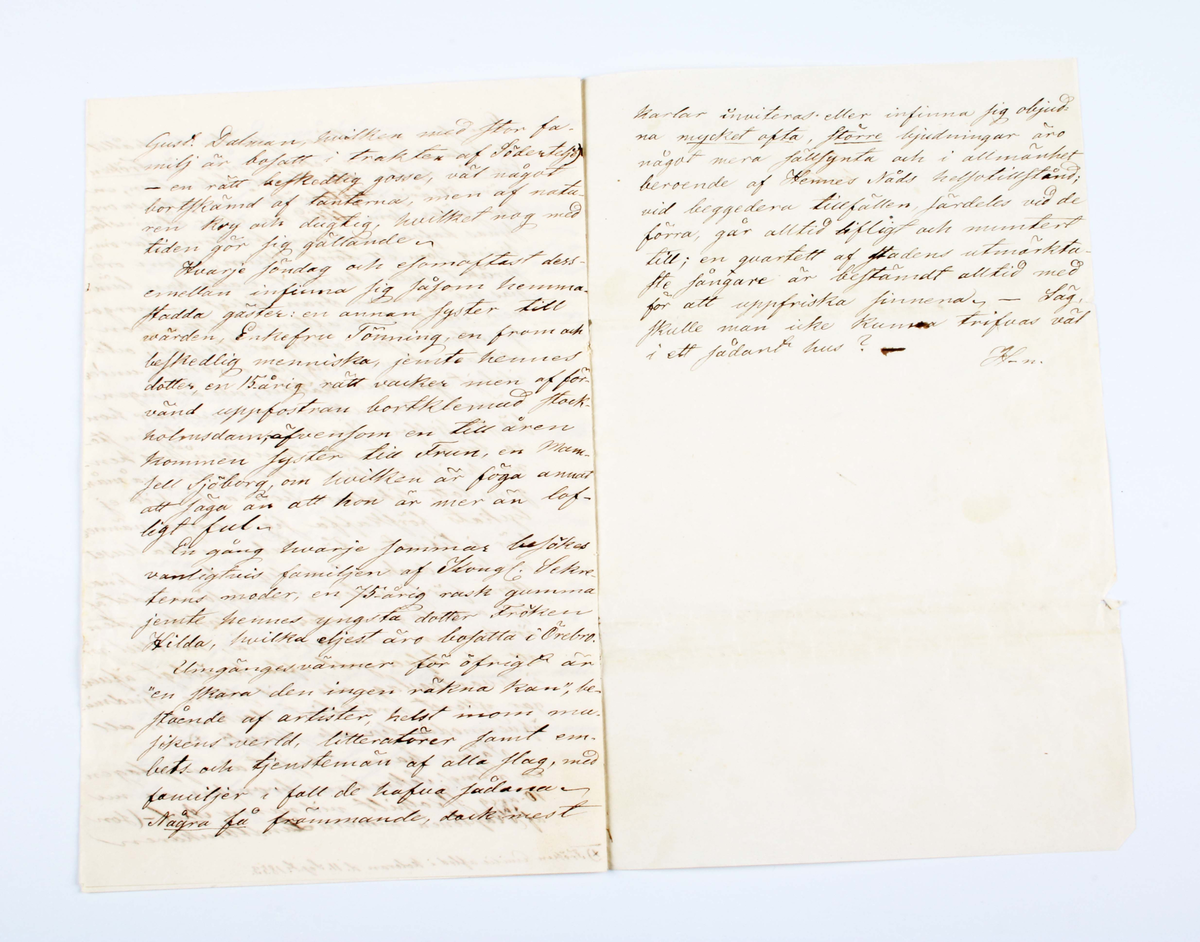 Gust. Dalman, hvilken med stor fa-
milj är bosatt i trakten af Södertelje
— en rätt beskedlig gosse, väl något
bortskämd af tanterna, men af natu-
ren kry och dugtig, hvilket nog med
tiden gör sig gällande.
Hvarje söndag och esomoftast dess-
emellan infinna sig såsom hemma-
stadda gäster: en annan syster till
värden, Enkefru Tönning, en from och
beskedlig menniska, jemte hennes
dotter, en 15-årig rätt vacker men af för-
vänd uppfostran bortklemad stock-
holmsdam; äfvensom en till åren
kommen syster till Frun, en Mam-
sell Sjöborg, om hvilken är föga annat
att säga än att hon är mer än lof-
ligt ful.
En gång hvarje sommar besökes
vanligtvis familjen af Kongl. Sekre-
terns moder, en 75-årig rask gumma
jemte hennes yngsta dotter Fröken
Hilda, hvilka eljest äro bosatta i Örebro.
Umgängesvänner för öfrigt är
"en skara den ingen räkna kan", be-
stående af artister, helst inom mu-
sikens verld, litteratörer samt em-
bets- och tjenstemän af alla slag, med
familjer i fall de hafva sådana.
Några få främmande, dock mest
karlar inviteras eller infinna sig objud-
na mycket ofta, större bjudningar äro
något mera sällsynta och i allmänhet
beroende af Hennes Nåds helsotillstånd;
vid beggedera tillfällen, särdeles vid de
förra, går alltid lifligt och muntert
till; en quartett af stadens utmärkta-
ste sångare är beständt alltid med
för att uppfriska sinnena. — Säg,
skulle man icke kunna trifvas väl
i ett sådant hus? —
H—n.